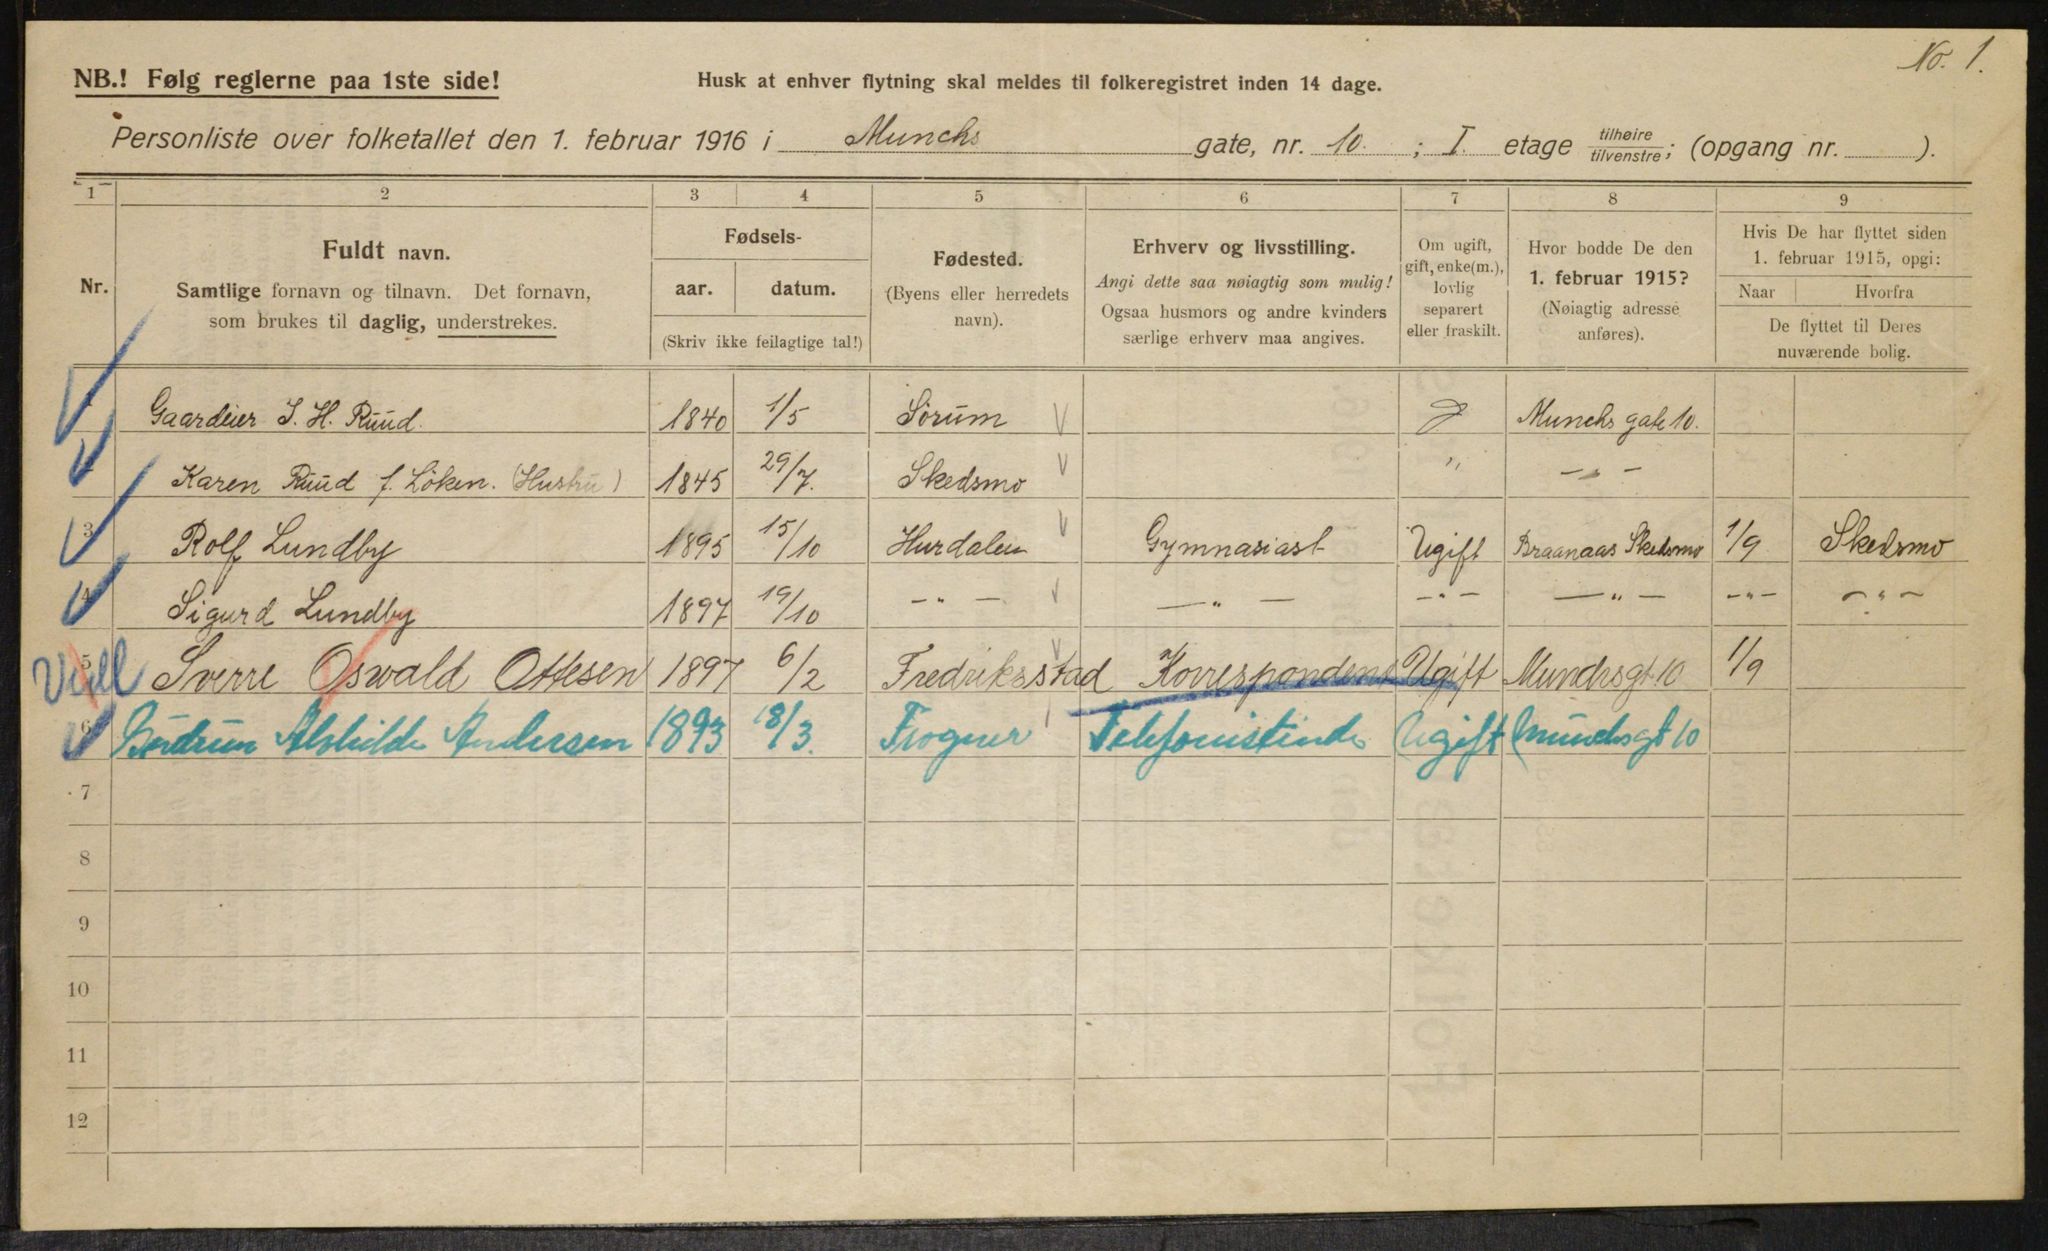 No. 1.
NB.! Følg reglerne paa 1ste side! Husk at enhver flytning skal meldes til folkeregistret inden 14 dage.
Personliste over folketallet den 1. februar 1916 i Munchs gate, nr. 10. ; I. etage tilhøire tilvenstre; (opgang nr. ).
1 2 3 4 5 6 7 8 9
Nr.
Fuldt navn.
Samtlige fornavn og tilnavn. Det fornavn,
som brukes til daglig, understrekes.
Fødsels-
aar. datum.
(Skriv ikke feilagtige tal!)
Fødested.
(Byens eller herredets
navn).
Erhverv og livsstilling.
Angi dette saa nøiagtig som mulig!
Ogsaa husmors og andre kvinders
særlige erhverv maa angives.
Om ugift,
gift, enke(m.),
lovlig
separert
eller fraskilt.
Hvor bodde De den
1. februar 1915?
(Nøiagtig adresse
anføres).
Hvis De har flyttet siden
1. februar 1915, opgi:
Naar Hvorfra
De flyttet til Deres
nuværende bolig.
Gaardeier I. H. Ruud. 1840 1/5 Sørum Munchs gate 10.
Karen Ruud f. Löken. (Hustru) 1845 29/7. Skedsmo " — " —
3 Rolf Lundby 1895 15/10 Hurdalen Gymnasiast Ugift Braanaas Skedsmo 1/9 Skedsmo
4 Sigurd Lundby 1897 19/10 — " — — " — — " — — " — — " — — " —
5 Sverre Oswald Ottesen 1897 6/2 Fredriksstad Korrespondent Ugift Munchsgt. 10 1/9
6 Andersen 1893 18/3. Frogner Telefonistinde Ugift Munchsgt 10
7
8
9
10
11
12